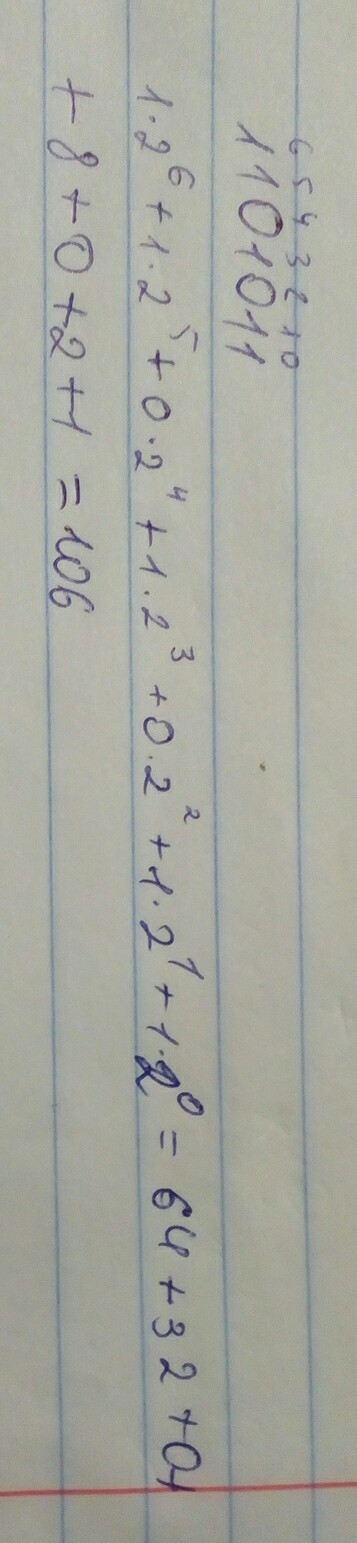 6 5 4 3 2 1 0
1101011
1·2⁶ + 1·2⁵ + 0·2⁴ + 1·2³ + 0·2² + 1·2¹ + 1·2⁰ = 64 + 32 + 0 +
+ 8 + 0 + 2 + 1 = 106